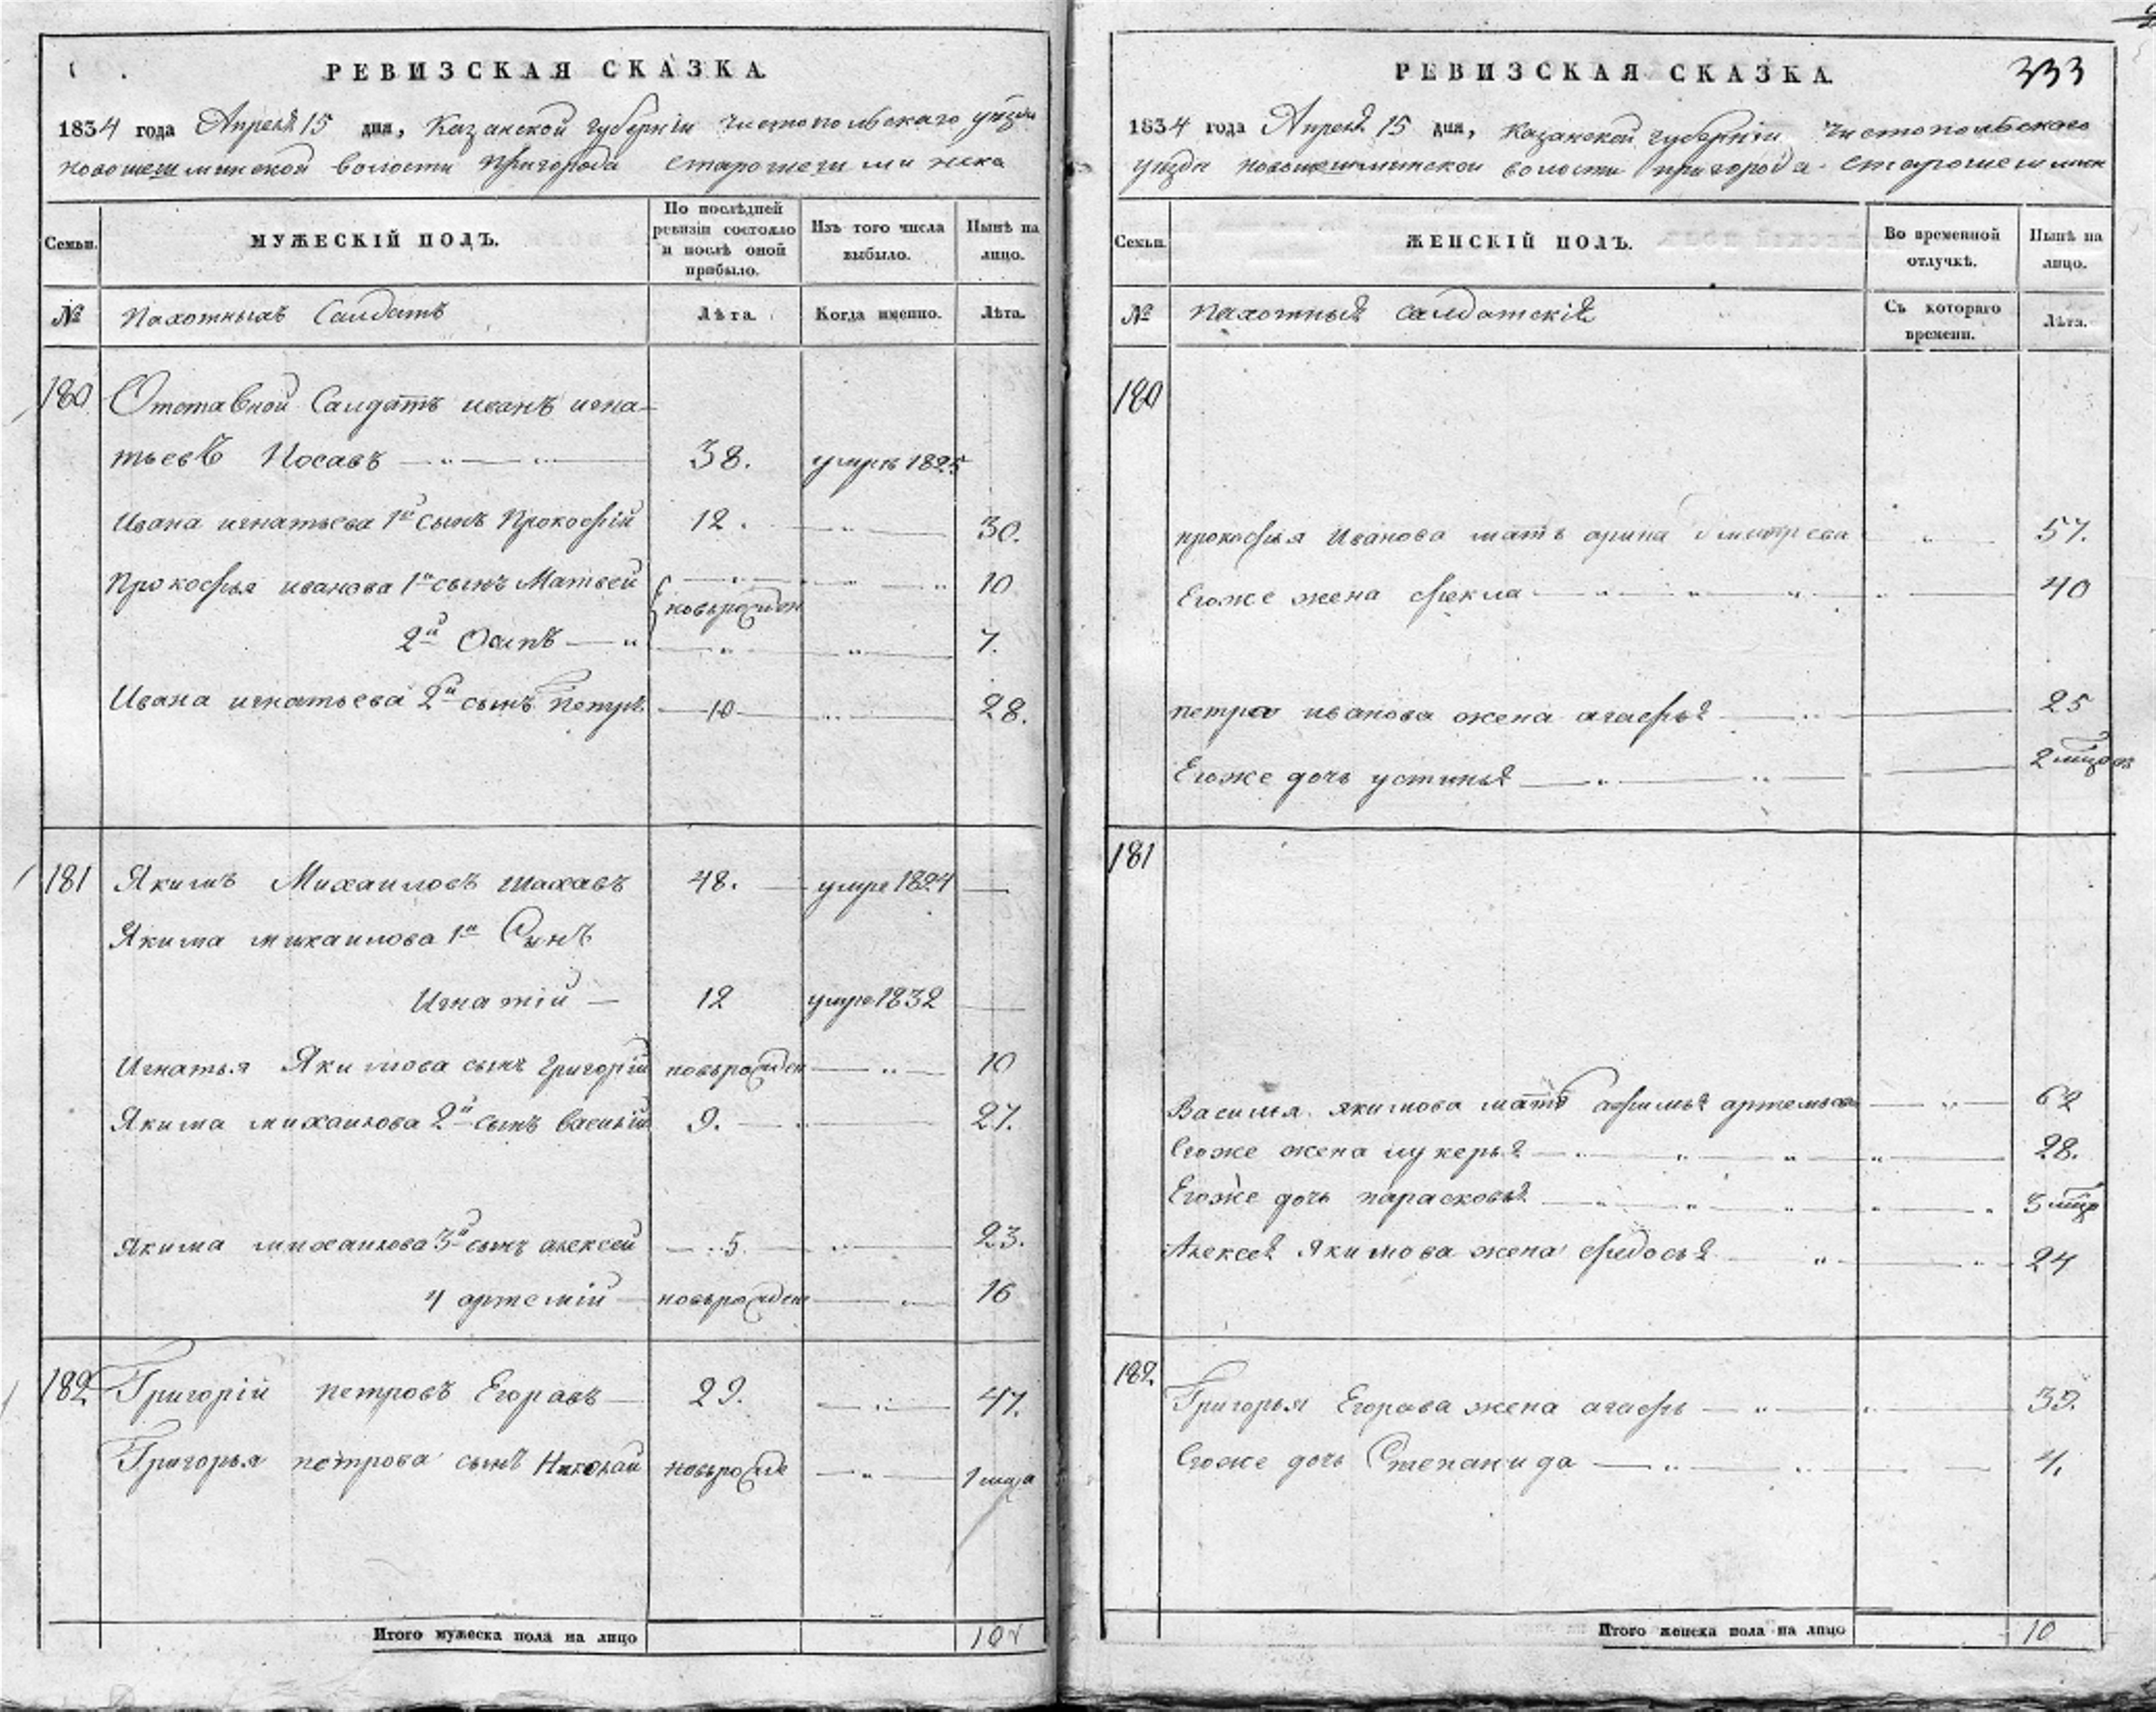 РЕВИЗСКАЯ СКАЗКА.
1834 года Апреля 15 дня, Казанской губерніи Чистопольскаго уѣзда
новошешминской волости пригорода старошешминска
Семьи.
МУЖЕСКІЙ ПОЛЪ.
По послѣдней ревизіи состояло и послѣ оной прибыло.
Изъ того числа выбыло.
Нынѣ на лицо.
№
Пахотныхъ Салдатъ
Лѣта.
Когда именно.
Лѣта.
180 Отставной Салдатъ иванъ игна-
тьевъ Носавъ 38. умре 1825
Ивана игнатьева 1й сынъ Прокофій 12. 30.
Прокофья иванова 1й сынъ Матвей 10
новърожден
2й Осипъ 7.
Ивана игнатьева 2й сынъ петръ 10 28.
181 Якимъ Михаиловъ шахавъ 48. умре 1824
Якима михаилова 1й Сынъ
Игнатій 12 умре 1832
Игнатья Якимова сынъ Григорій новърожден 10
Якима михаилова 2й сынъ василій 9. 27.
Якима михаилова 3й сынъ алексей 5 23.
4 артемій новърожден 16
182 Григорій петровъ Егоравъ 29. 47.
Григорья петрова сынъ Николай новърожде
Итого мужеска пола на лицо 10
РЕВИЗСКАЯ СКАЗКА. 333
1834 года Апреля 15 дня, Казанской губерніи Чистопольскаго
уѣзда новошешминской волости пригорода Старошешминк
Семьи.
ЖЕНСКІЙ ПОЛЪ.
Во временной отлучкѣ.
Нынѣ на лицо.
№
пахотныя салдатскія
Съ котораго времени.
Лѣта.
180
прокофья Иванова мать арина дмитрева 57.
Егоже жена фекла 40
петра иванова жена агафья 25
Егоже дочь устинья 2
181
Василья якимова мать афимья артемьева 62
Егоже жена лукерья 28.
Егоже дочь парасковья 3
Алексея Якимова жена федосья 24
182. Григорья Егорава жена агафь 39.
Егоже дочь Степанида 4.
Итого женска пола на лицо 10